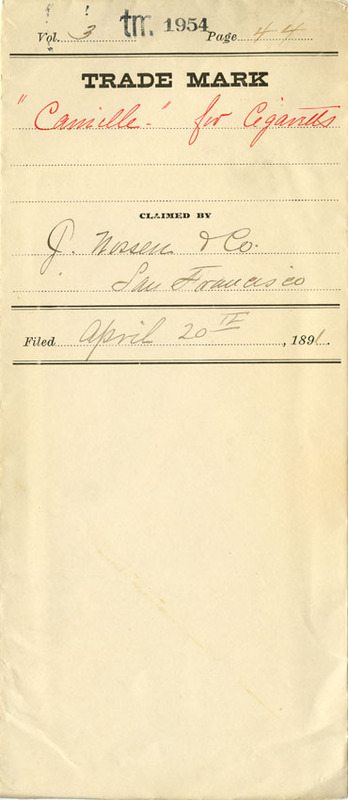 Vol. 3 tm. 1954 Page 44
TRADE MARK
"Camille" for Cigaretts
CLAIMED BY
J. Nossen & Co.
San Francisco
Filed April 20TH, 1891.